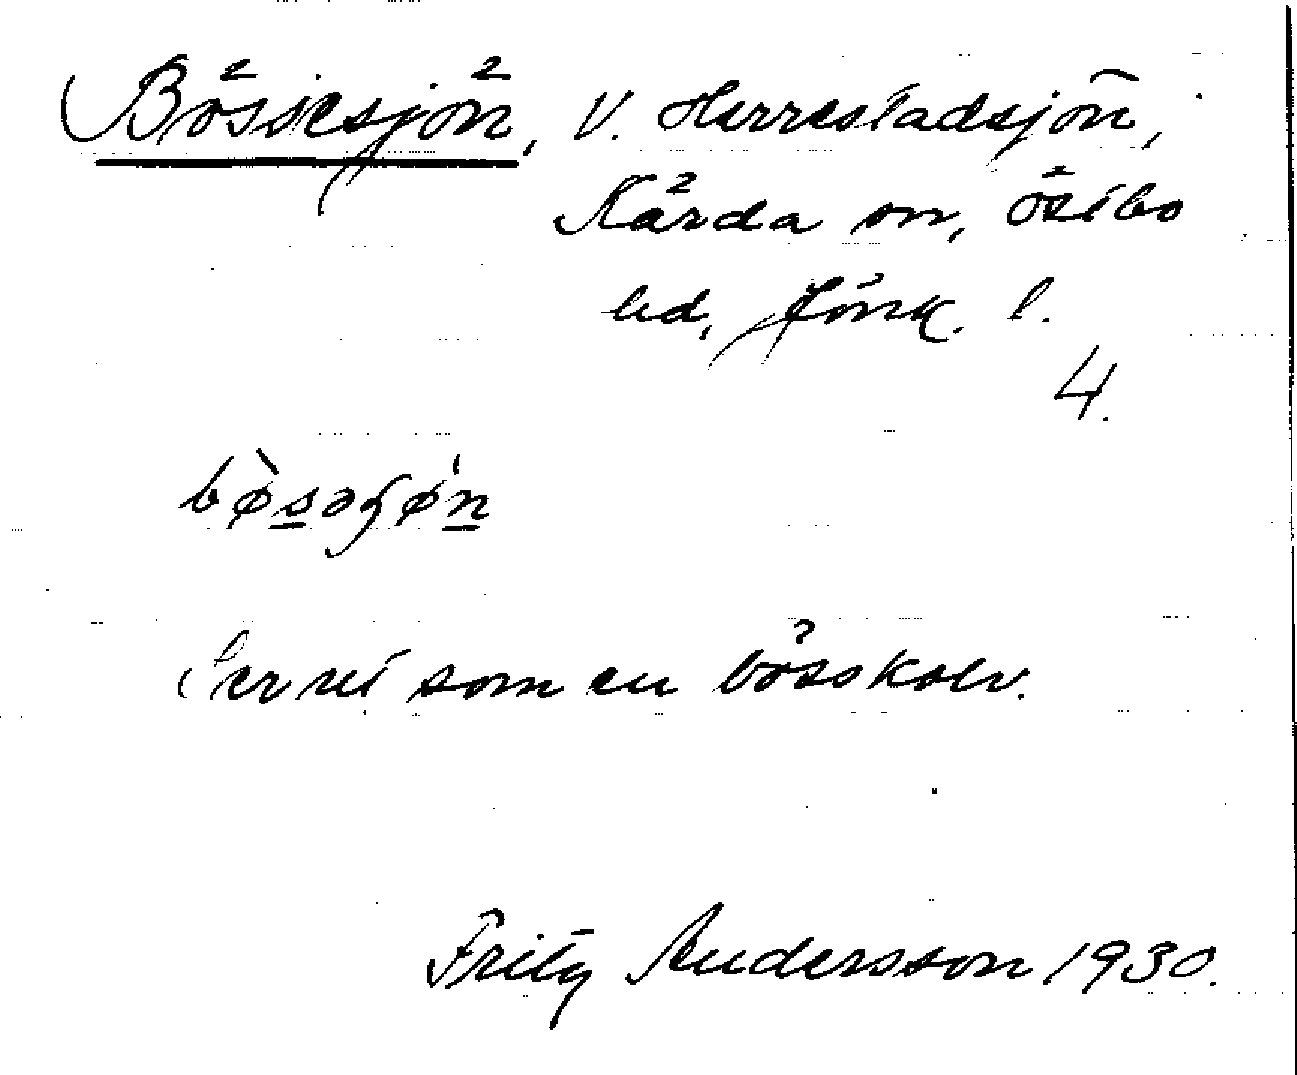 Bössesjön, V. Herrestadsjön,
Kärda sn, Östbo
hd, Jönk. l.
4.
bø̀səɧø'n
Ser ut som en bösskolv.
Fritz Andersson 1930.